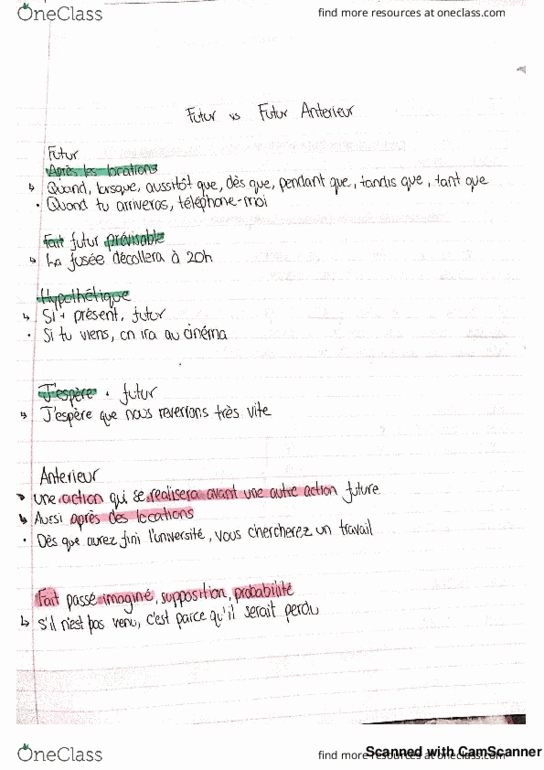 OneClass
find more resources at oneclass.com
Futur vs Futur Anterieur
Futur
Après les locations
↳ Quand, lorsque, aussitôt que, dès que, pendant que, tandis que, tant que
• Quand tu arriveras, téléphone-moi
Fait futur prévisable
↳ La fusée décollera à 20h
Hypothétique
↳ Si + présent, futur
• Si tu viens, on ira au cinéma
J'espère + futur
↳ J'espère que nous reverrons très vite
Anterieur
↳ une action qui se realisera avant une autre action future
↳ Aussi après des locations
• Dès que aurez fini l'université, vous chercherez un travail
Fait passé imaginé, supposition, probabilité
↳ S'il n'est pas venu, c'est parce qu'il serait perdu
OneClass
find more resources at oneclass.com
Scanned with CamScanner